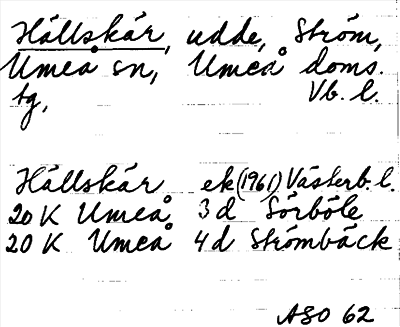 Hällskär, udde, Ström,
Umeå sn, Umeå doms.
tg, Vb. l.
Hällskär ek (1961) Västerb. l.
20 K Umeå 3 d Sörböle
20 K Umeå 4 d Strömbäck
ASO 62